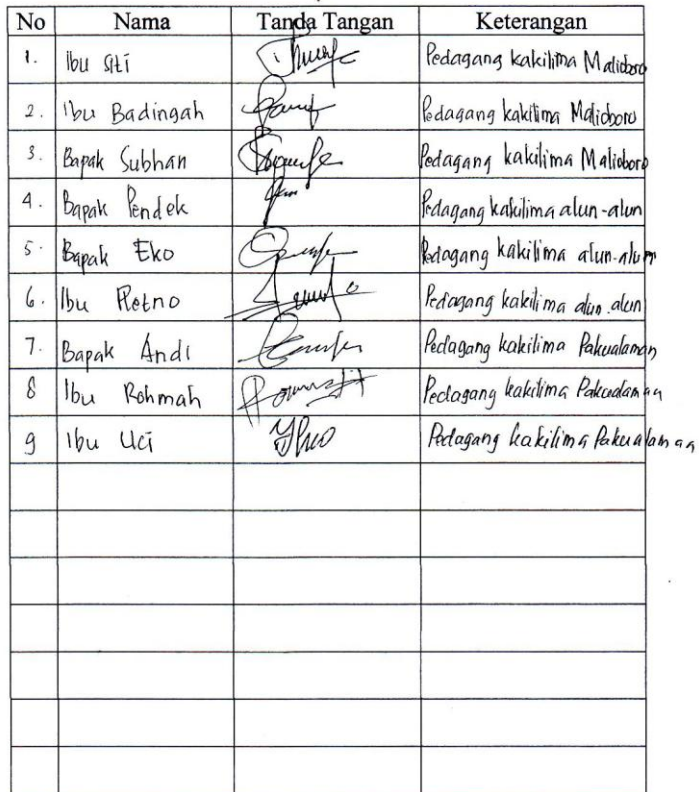 No Nama Tanda Tangan Keterangan
1. Ibu Siti Pedagang kakilima Malioboro
2. Ibu Badingah Pedagang kakilima Malioboro
3. Bapak Subhan Pedagang kakilima Malioboro
4. Bapak Pendek Pedagang kakilima alun-alun
5. Bapak Eko Pedagang kakilima alun-alun
6. Ibu Retno Pedagang kakilima alun-alun
7. Bapak Andi Pedagang kakilima Pakualaman
8 Ibu Rohmah Pedagang kakilima Pakualaman
9 Ibu Uci Pedagang kakilima Pakualaman